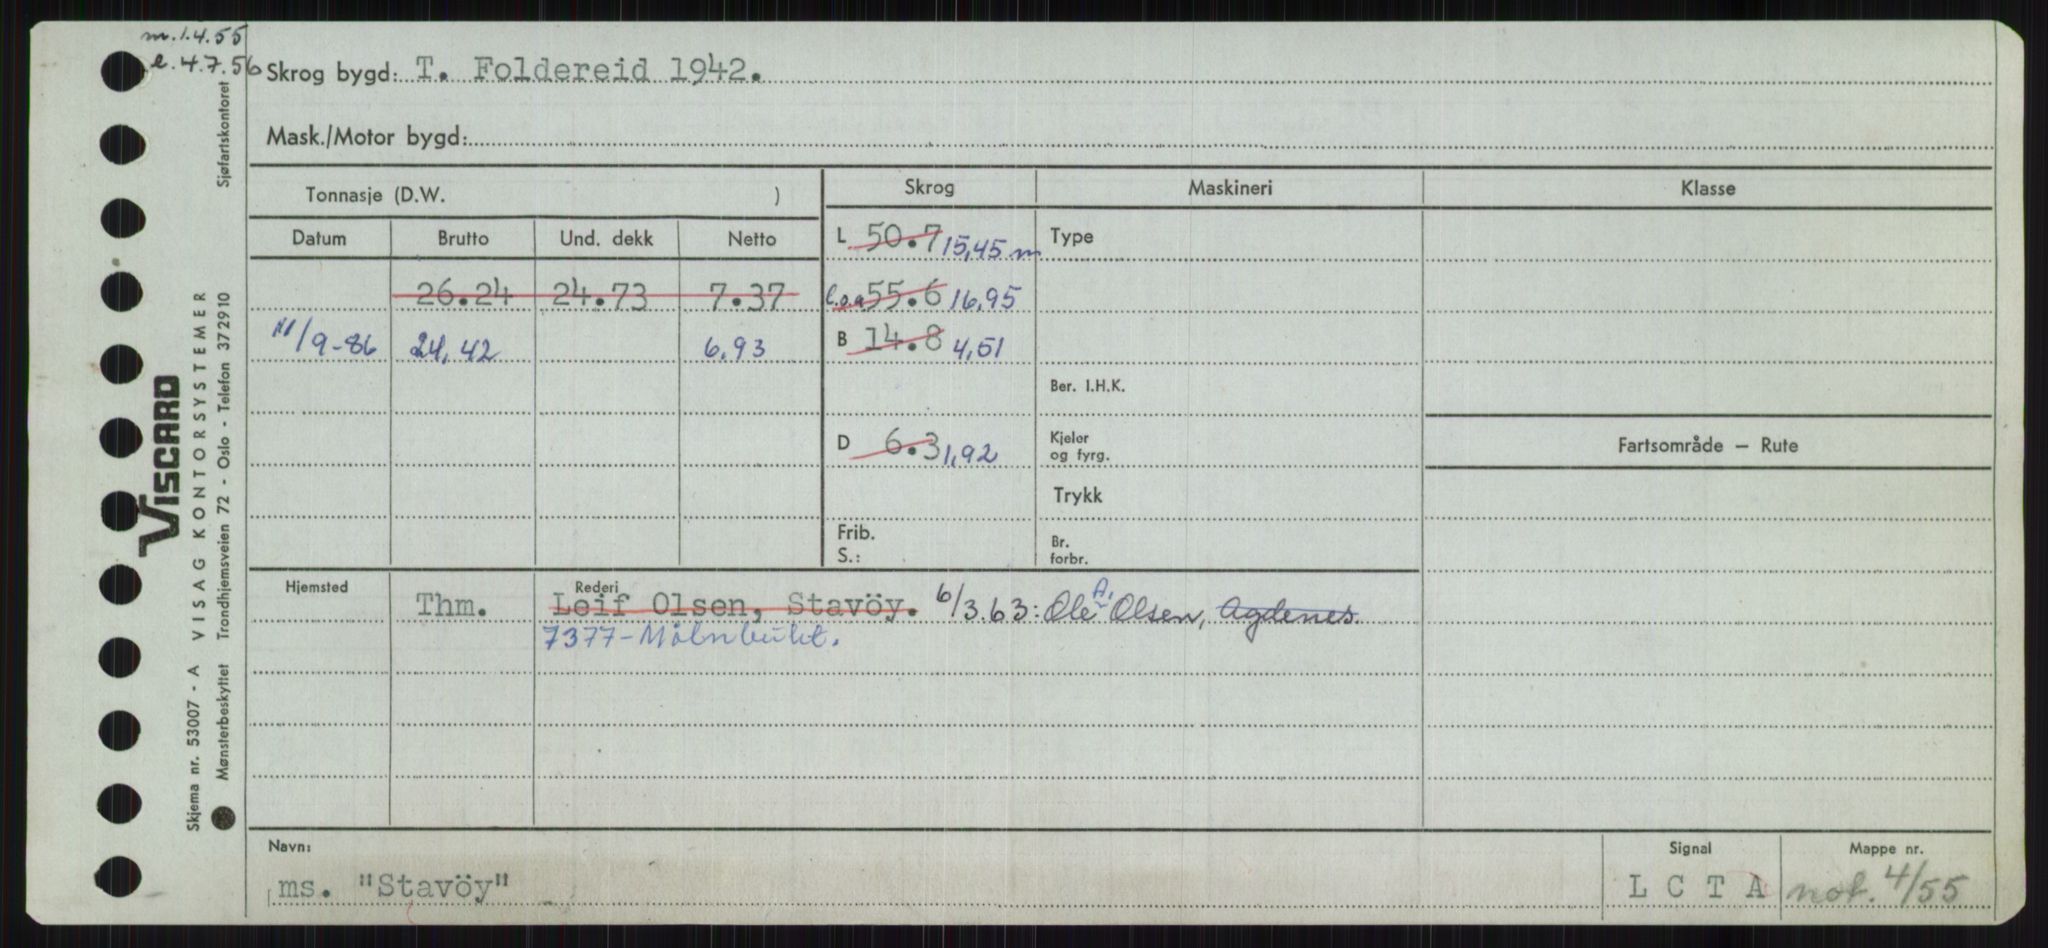 m. 1.4.55
l. 4.7.56
Skrog bygd: T. Foldereid 1942.
Mask./Motor bygd:
Tonnasje (D.W. ) Skrog Maskineri Klasse
Datum Brutto Und. dekk Netto L 50.7 15,45 m Type
26.24 24.73 7.37 l.o.a 55.6 16,95
/9-86 24,42 6,93 B 14.8 4,51
Ber. I.H.K.
D 6.3 1,92 Kjeler og fyrg. Fartsområde — Rute
Trykk
Frib.
S.: Br. forbr.
Hjemsted Thm. Rederi Leif Olsen, Stavöy. 6/3.63: Ole A. Olsen, Agdenes.
7377-Molnbukt.
Navn: Signal Mappe nr.
ms. "Stavöy" L C T A not. 4/55
Skjema nr. 53007 - A VISAG KONTORSYSTEMER
Mønsterbeskyttet Trondhjemsveien 72 - Oslo - Telefon 372910 Sjøfartskontoret
VISCARD